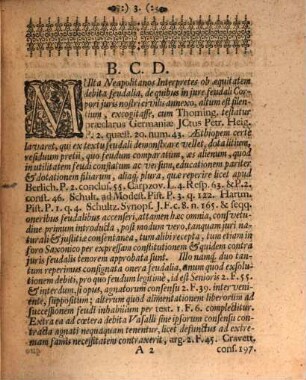 :) 3. (:
B. C. D.
MUlta Neapolitanos Interpretes ob æquitatem
debita feudalia, de quibus in jure feudali Cor-
pori juris nostri civilis annexo, altum est silen-
tium, excogitasse, cum Thoming. testatur
præclarus Germaniæ JCtus Petr. Heig.
P. 2. quæst. 20. num. 43. Æthiopem certè
lavaret, qui ex textu feudali demonstrare vellet, dotalitium,
residuum pretii, quo feudum comparatum, æs alienum quod
in utilitatem feudi constitutum ac versum, educationem pariter
& dotationem filiarum, aliaq; plura, quæ reperire licet apud
Berlich. P. 2. conclus. 55. Carpzov. L. 4. Resp. 63. & P. 2.
const. 46. Schult. ad Modest. Pist. P. 3. q. 122. Hartm.
Pist. P. 1. q. 4. Schultz. Synops. J. F. c. 8. n. 165. & seqq.
oneribus feudalibus accenseri, attamen hæc omnia, consvetu-
dine primum introducta, post modum verò, tanquam juri na-
turali & justitiæ consentanea, tum aliis recepta, tum etiam in
foro Saxonico per expressam constitutionem & quidem contra
juris feudalis tenorem approbata sunt. Illo namq; duo tan-
tum reperimus consignata onera feudalia, unum quod exsolu-
tionem debiti, pro quo feudum legitimè, id est Senioris 2. F. 55.
& interdum, si opus, agnatorum consensu 2. F. 39. interve-
niente, suppositum; alterum quod alimentationem liberorum ad
successionem feudi inhabilium per text. 1. F. 6. complectitur.
Extra ea ad cœtera debita Vasalli sine ipsorum consensu con-
tracta agnati nequaquam tenentur, licet defunctus ad extre-
mam famis necessitatem contraxerit, arg. 2. F. 45. Cravett.
A 2 cons. 197.